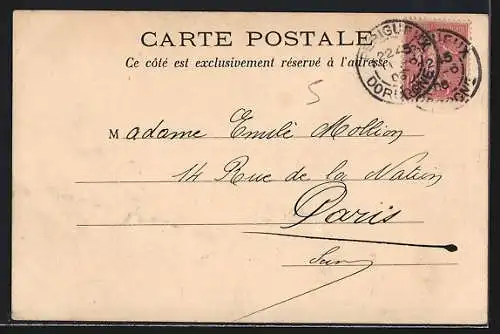 CARTE POSTALE
Ce côté est exclusivement réservé à l'adresse.
PERIGUEUX
DORDOGNE
5
Madame Emile Mollion
14 Rue de la Nation
Paris
Seine